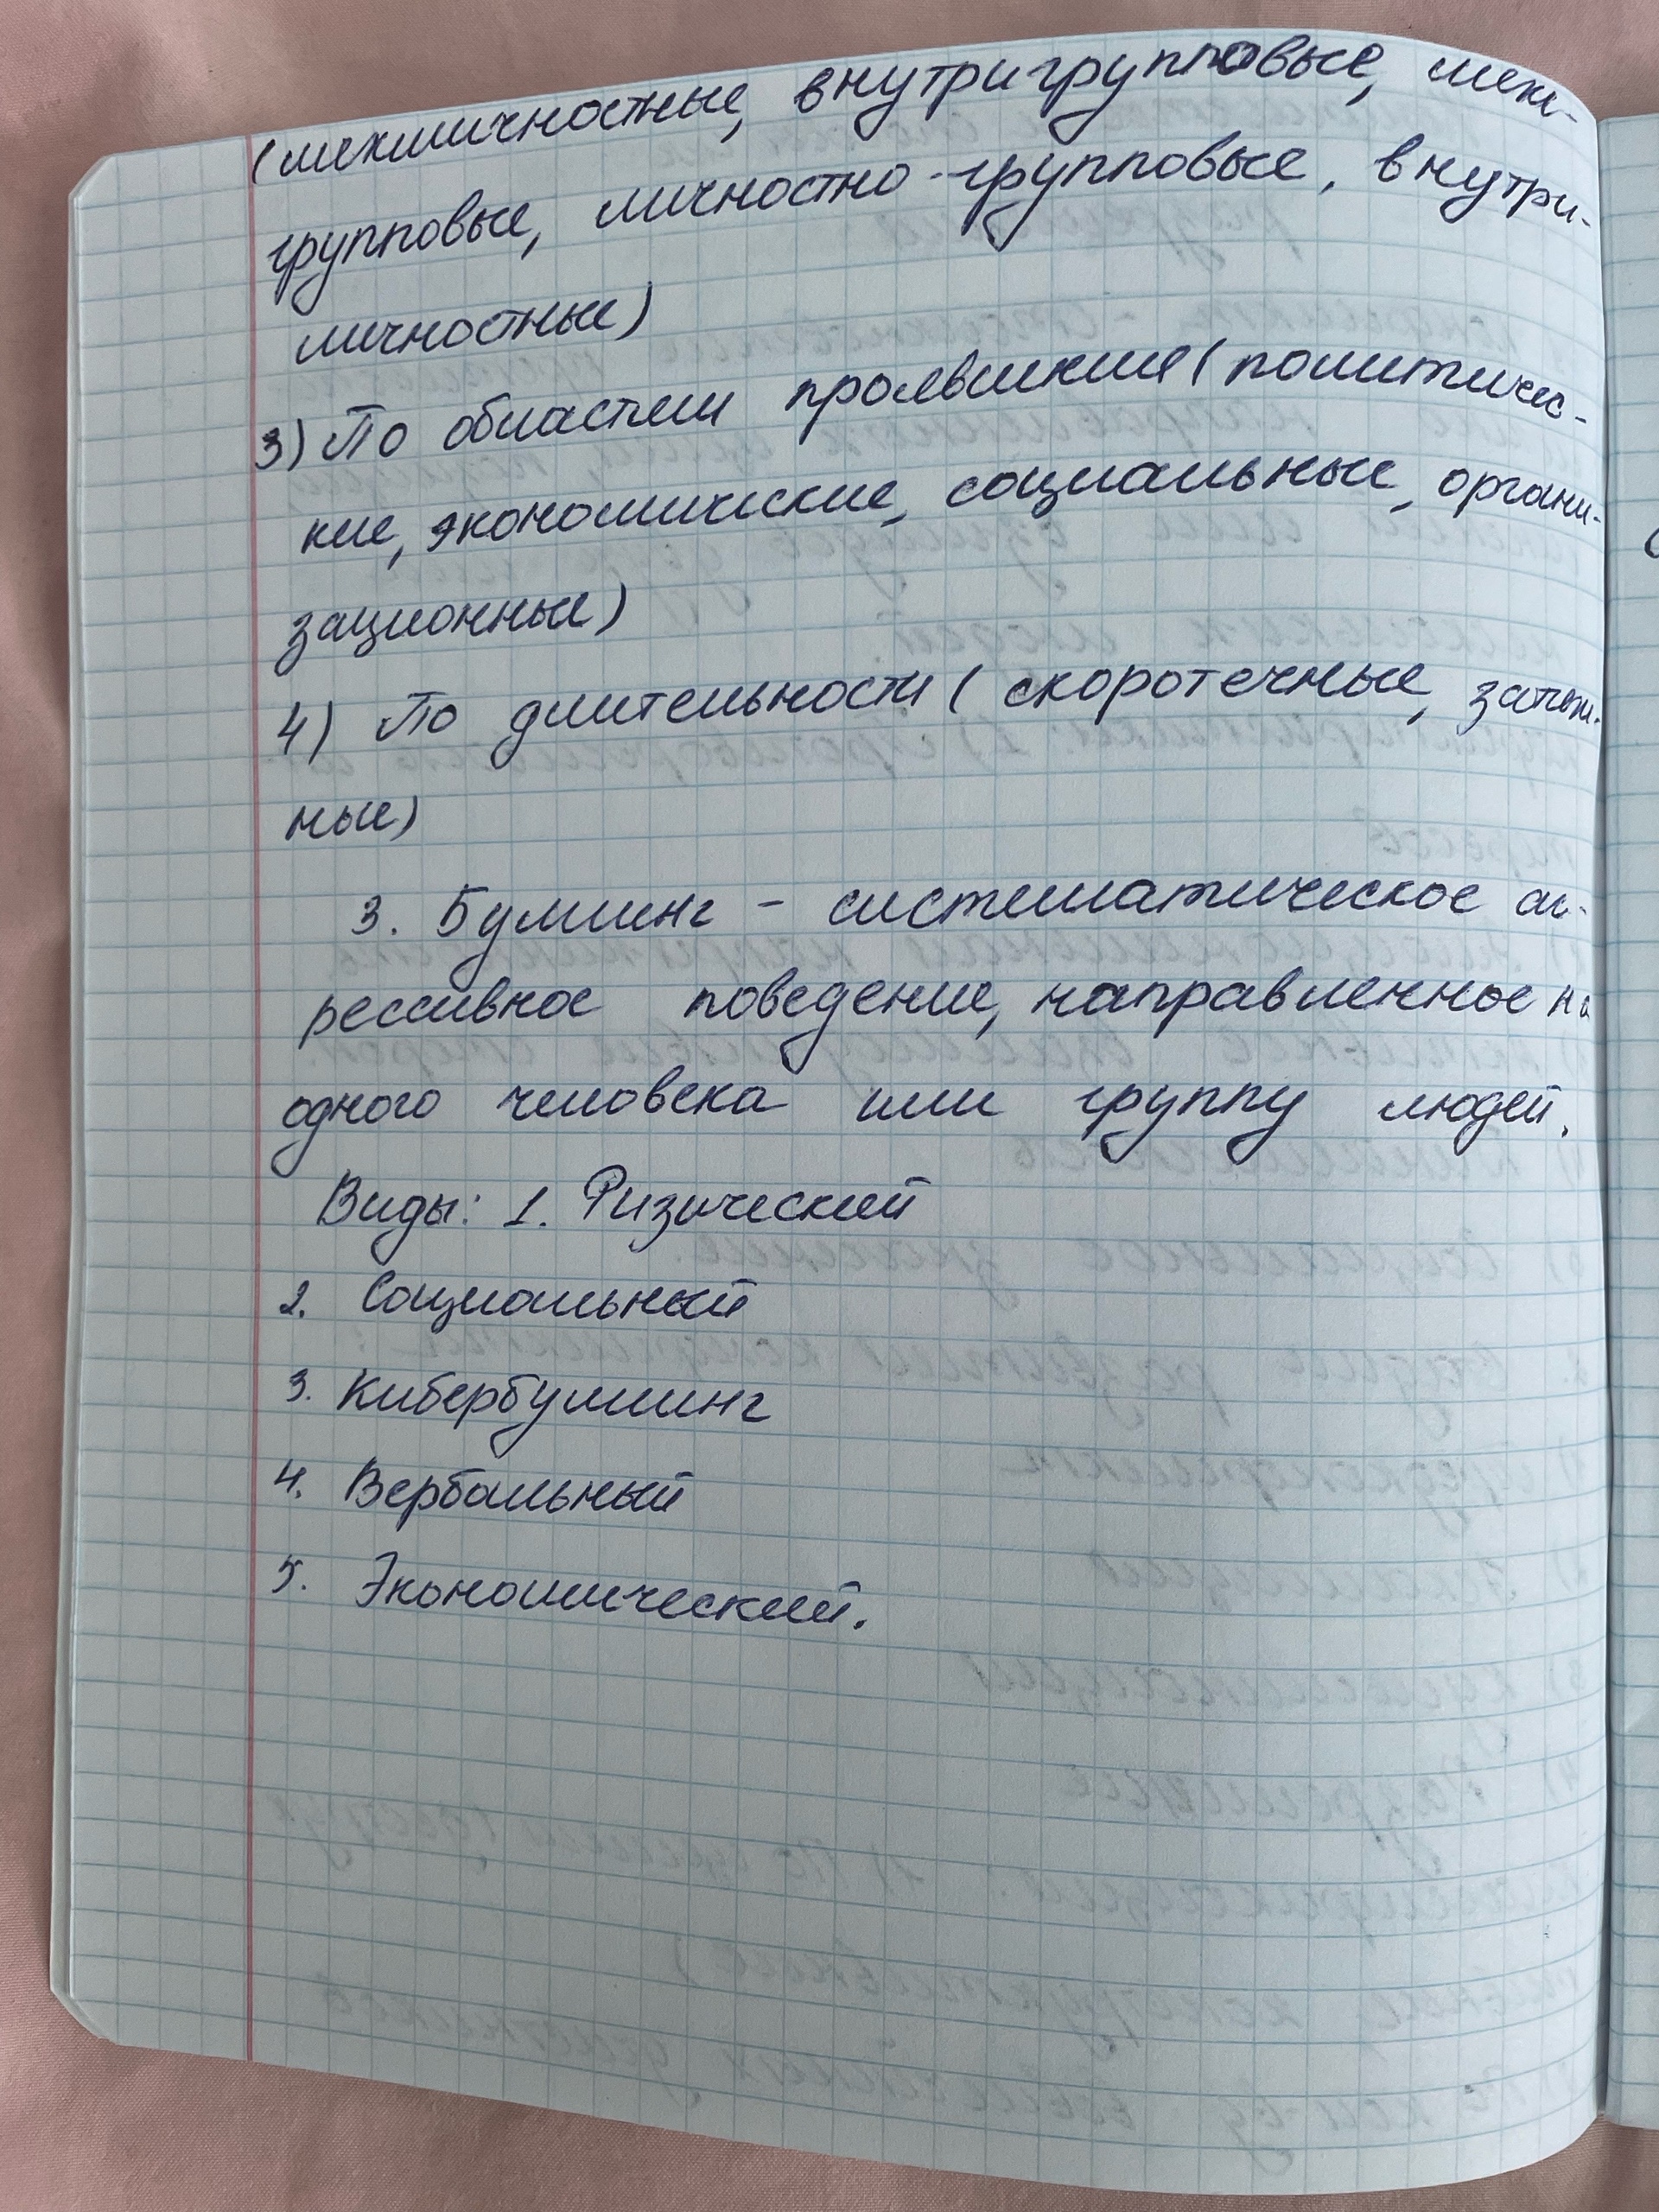 (межличностные, внутригрупповые, меж-
групповые, личностно-групповые, внутри-
личностные)
3) По областям проявления (политичес-
кие, экономические, социальные, органи-
зационные)
4) По длительности (скоротечные, затяж-
ные)
3. Буллинг - систематическое аг-
рессивное поведение, направленное на
одного человека или группу людей.
Виды: 1. Физический
2. Социальный
3. Кибербуллинг
4. Вербальный
5. Экономический.